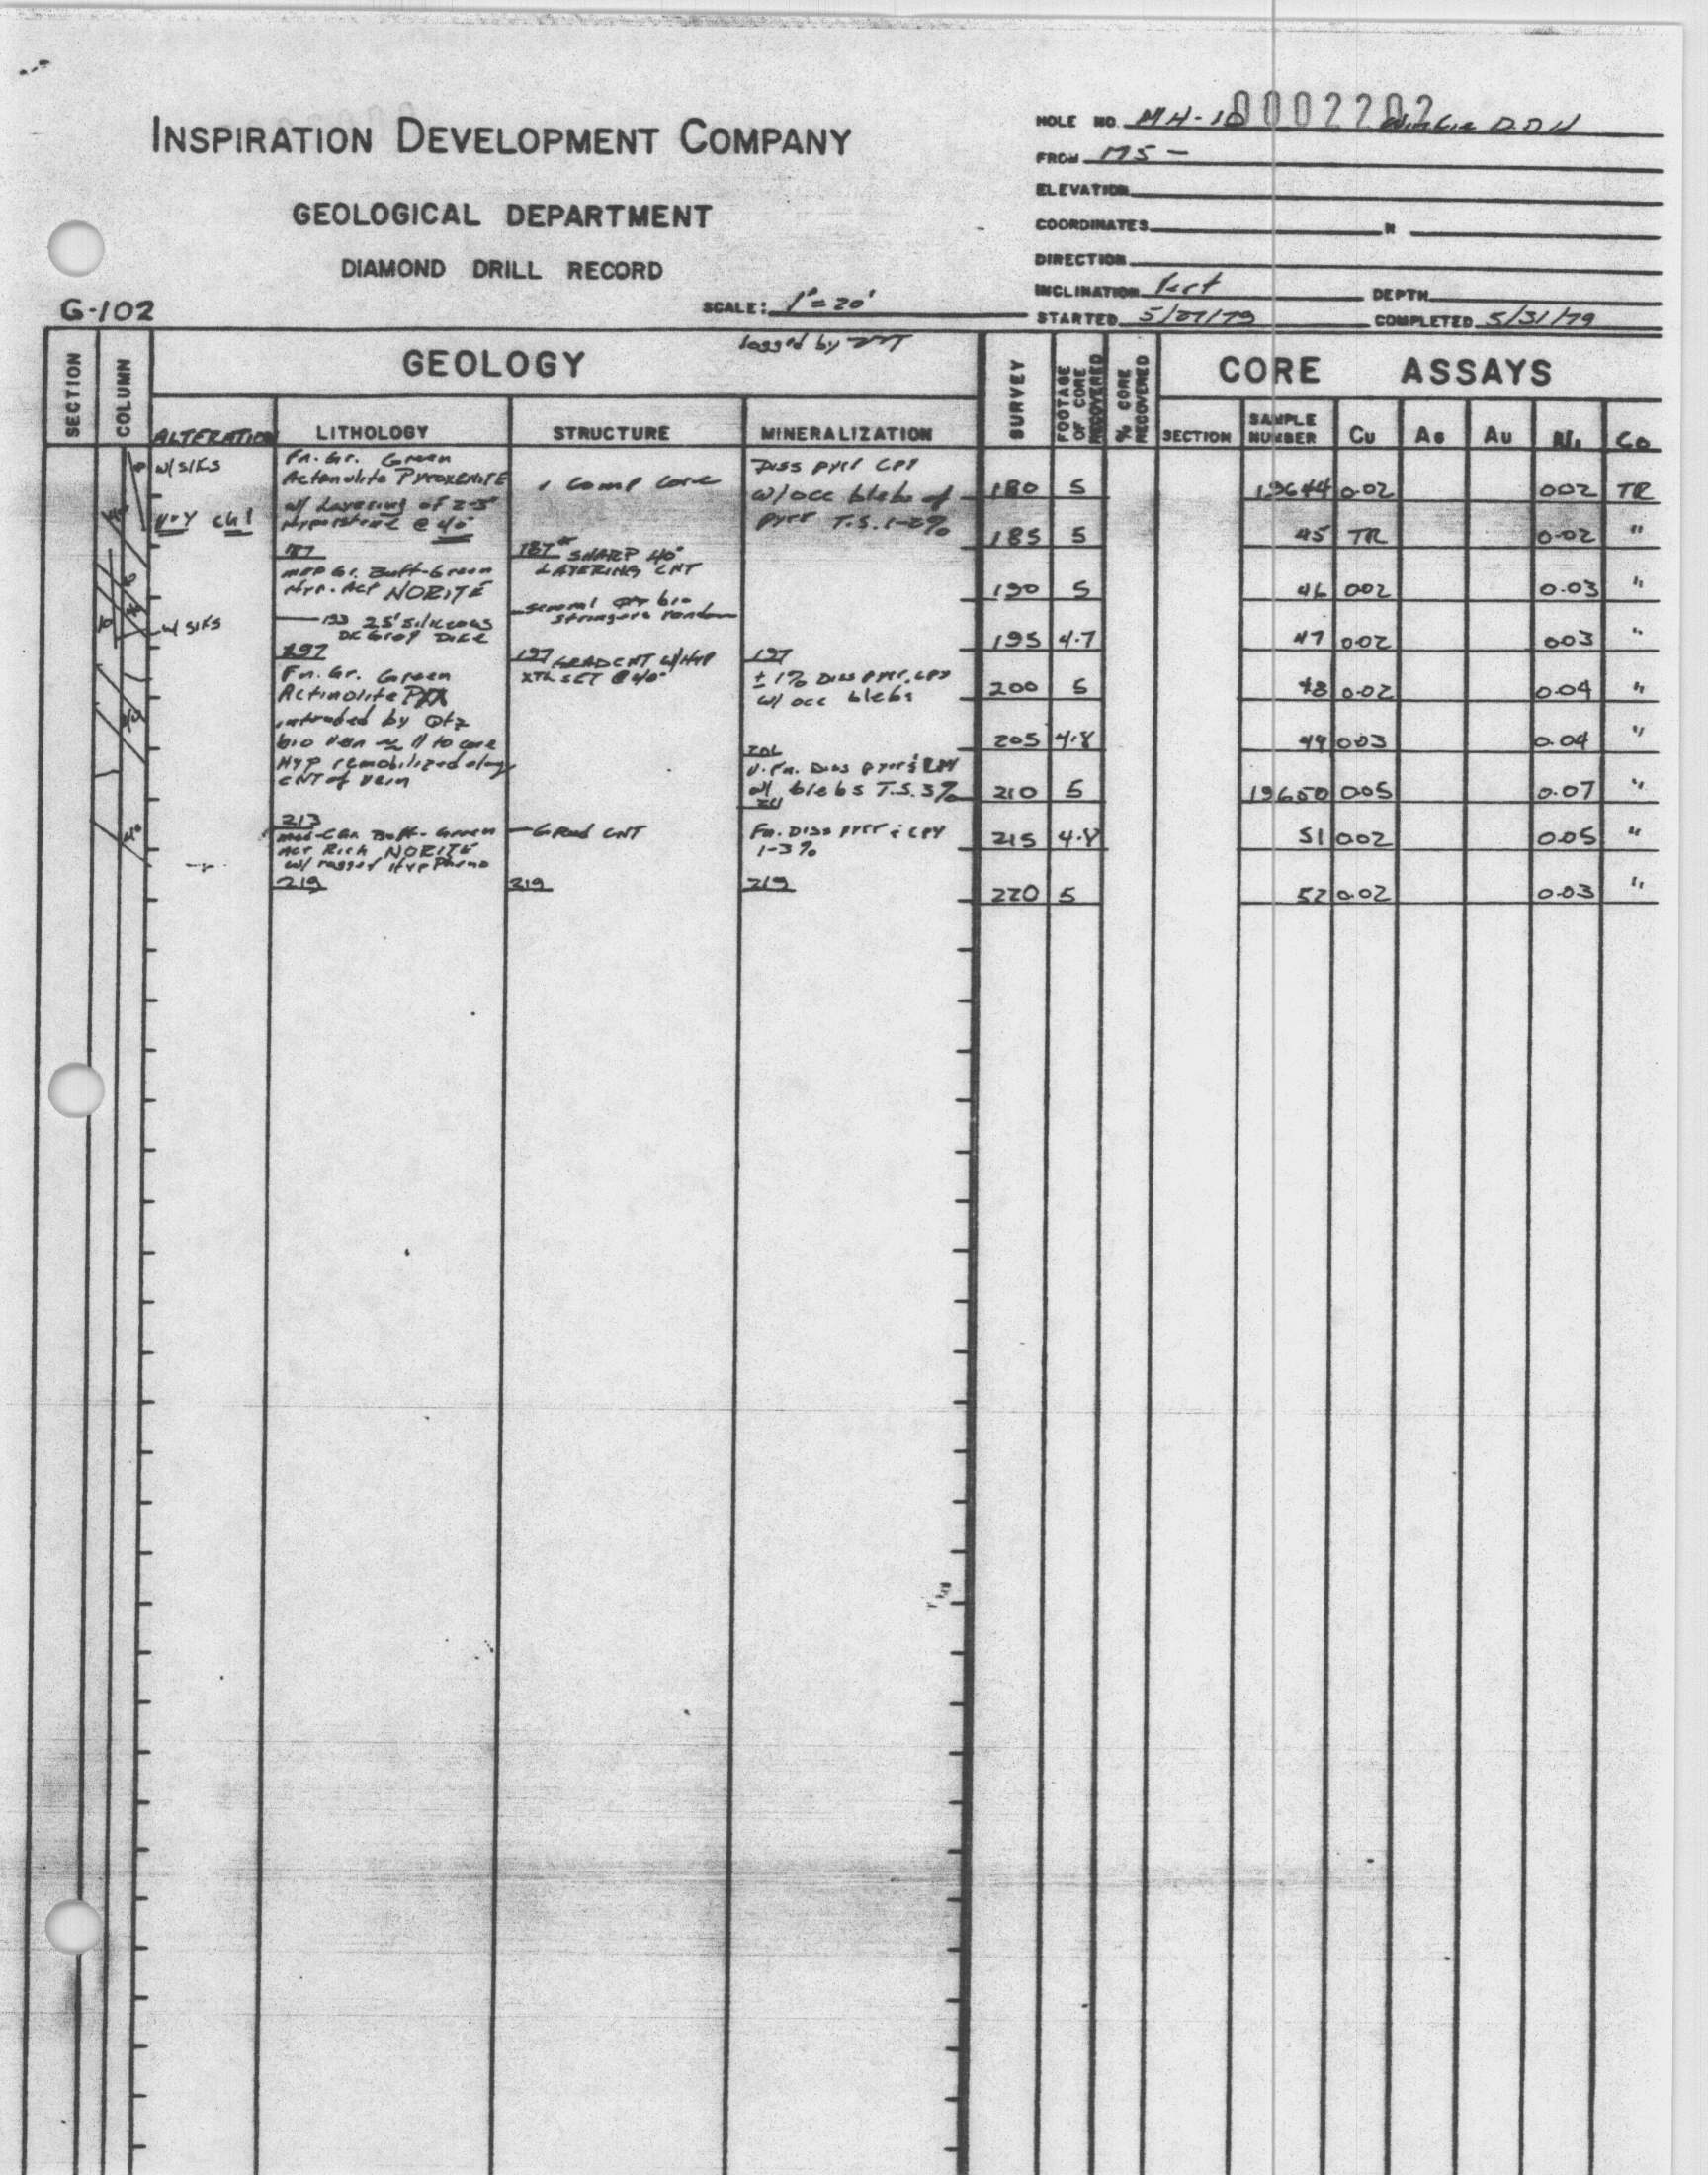 0002202
INSPIRATION DEVELOPMENT COMPANY
GEOLOGICAL DEPARTMENT
DIAMOND DRILL RECORD
G-102
SCALE: 1"=20'
HOLE NO. MH-10 Winkie DDH
FROM 175 -
ELEVATION
COORDINATES N
DIRECTION
INCLINATION Vert DEPTH
STARTED 5/27/79 COMPLETED 5/31/79
logged by
SECTION COLUMN GEOLOGY SURVEY FOOTAGE OF CORE RECOVERED % CORE RECOVERED CORE ASSAYS
ALTERATION LITHOLOGY STRUCTURE MINERALIZATION SECTION SAMPLE NUMBER Cu Ag Au Ni Co
w/ slks
chl
w/ slks
Fn. Gr. Green
Actonolite PYROXENITE
w/ Layering of 2-5
Hyperstene @ 40°
187
MED Gr. Buff-Green
Hyp. Act NORITE
193 .25' siliceous
DK Grey DIKE
197
Fn. Gr. Green
Actinolite PYX
intruded by Qtz
bio vein ≈ // to core
Hyp remobilized along
CNT of vein
213
med-CGr. Buff-Green
Act Rich NORITE
w/ ragged Hyp Pheno
219
Comp Core
187 SHARP 40°
LAYERING CNT
several qtz bio
stringers random
197 GRAD CNT w/HYP
XTL SET @ 40°
Grad CNT
219
Diss pyrr CPY
w/ occ blebs of
pyrr T.S. 1-2%
197
± 1% Diss pyrr, cpy
w/ occ blebs
206
V. Fn. Diss pyrr & CPY
w/ blebs T.S. 3%
211
Fn. Diss pyrr & CPY
1-3%
219
180 5 19644 0.02 0.02 TR
185 5 45 TR 0.02 "
190 5 46 0.02 0.03 "
195 4.7 47 0.02 0.03 "
200 5 48 0.02 0.04 "
205 4.8 49 0.03 0.04 "
210 5 19650 0.05 0.07 "
215 4.8 51 0.02 0.05 "
220 5 52 0.02 0.03 "